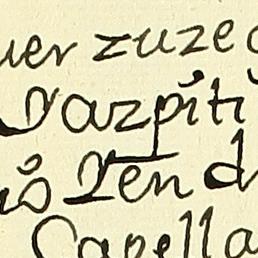 uer zuze
razpiti
uo ren d
Capella